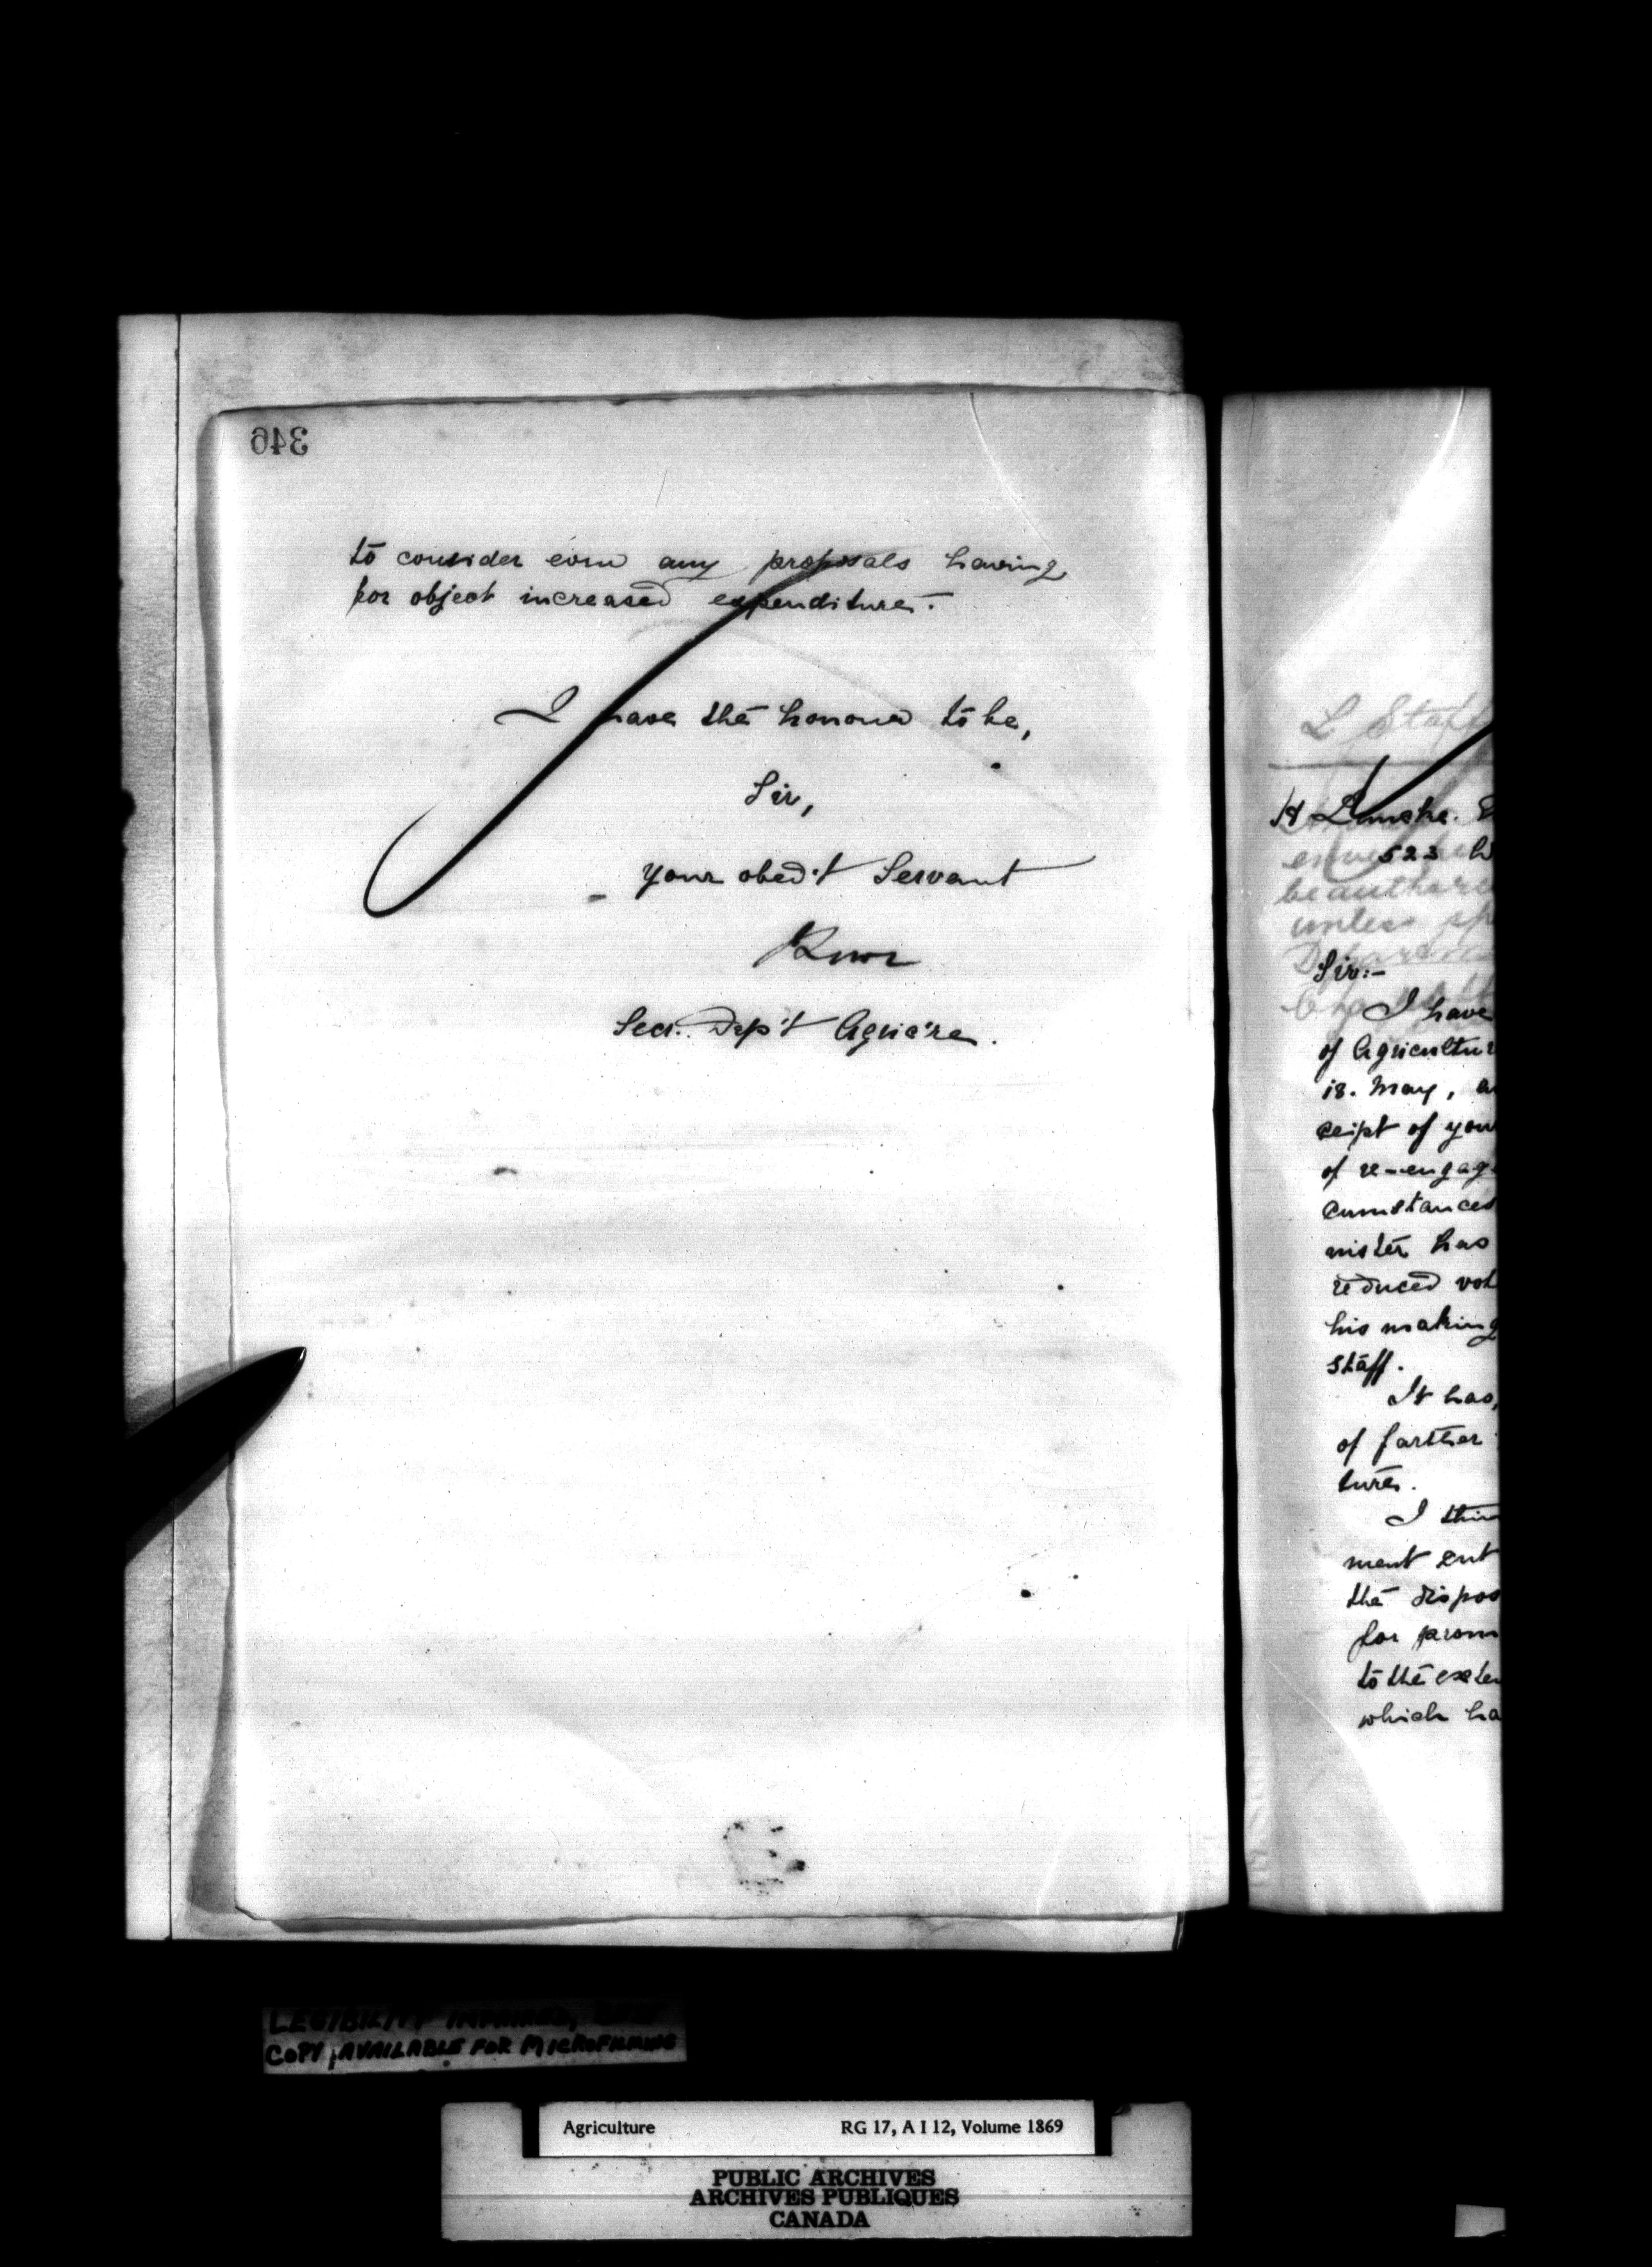 346
to consider even any proposals having
for object increased expenditure.
I have the honour to be,
Sir,
Your obed't Servant
Secr. Dep't Agric're.
L Staff
H
523
be author
unless sp
Sir:-
I have
of Agricultur
18. May, a
ceipt of you
of re-engag
cumstances
nister has
reduced vot
his making
staff.
It has,
of farther
tures.
I thin
ment ent
the dispos
for prom
to the exten
which ha
LEGIBILITY IMPAIRED, BEST
COPY AVAILABLE FOR MICROFILMING
Agriculture RG 17, A I 12, Volume 1869
PUBLIC ARCHIVES
ARCHIVES PUBLIQUES
CANADA